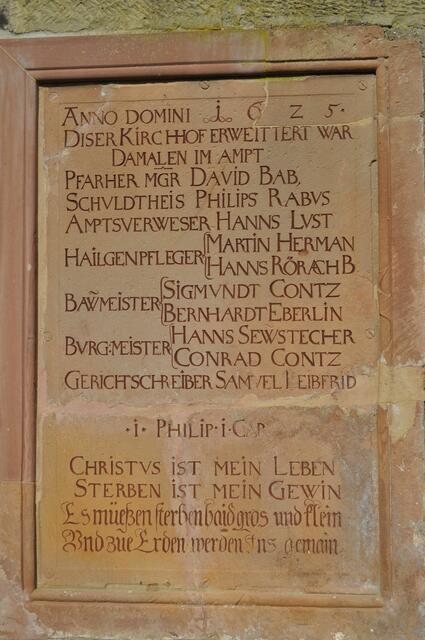 ANNO DOMINI 1625.
DISER KIRCHHOF ERWEITTERT WAR
DAMALEN IM AMPT
PFARHER MGR DAVID BAB,
SCHVLDTHEIS PHILIPS RABVS
AMPTSVERWESER HANNS LVST
HAILGENPFLEGER MARTIN HERMAN
HANNS RÖRACHB
BAṼMEISTER SIGMVNDT CONTZ
BERNHARDT EBERLIN
BVRG:MEISTER HANNS SEWSTECHER
CONRAD CONTZ
GERICHTSCHREIBER SAMVEL LEIBFRID
·1· PHILIP·1·CAP
CHRISTVS IST MEIN LEBEN
STERBEN IST MEIN GEWIN
Es müeßen sterben baid gros und klein
Vnd zue Erden werden Ins gemain